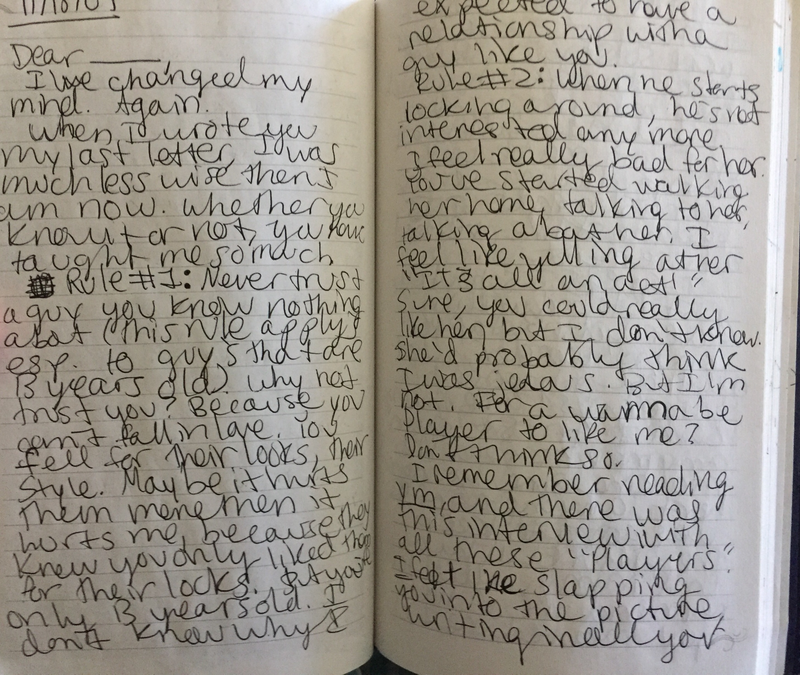 Dear ____
I've changed my
mind. Again.
When I wrote you
my last letter, I was
much less wise then I
am now. Whether you
know it or not, you have
taught me so much
Rule #1: Never trust
a guy you know nothing
abot (this rule apply's
esp. to guy's that are
13 years old). Why not
trust you? Because you
can't fall in love. You
fell for their looks, their
style. Maybe it hurts
them more then it
hurts me, because they
knew you only liked them
for their locks. But you're
only 13 years old. I
don't know why I
expected to have a
relationship with a
guy like you.
Rule #2: When he starts
locking around, he's not
interested any more
I feel really bad for her.
You've started walking
her home, talking to her,
talking abot her. I
feel like yelling at her
"It's all an act!"
Sure, you could really
like her, but I don't know.
She'd probably think
I was jealous. But I'm
not. For a wanna be
player to like me?
Don't think so.
I remember reading
ym, and there was
this interview with
all these "Players".
I feel like slapping
you into the picture
in all your